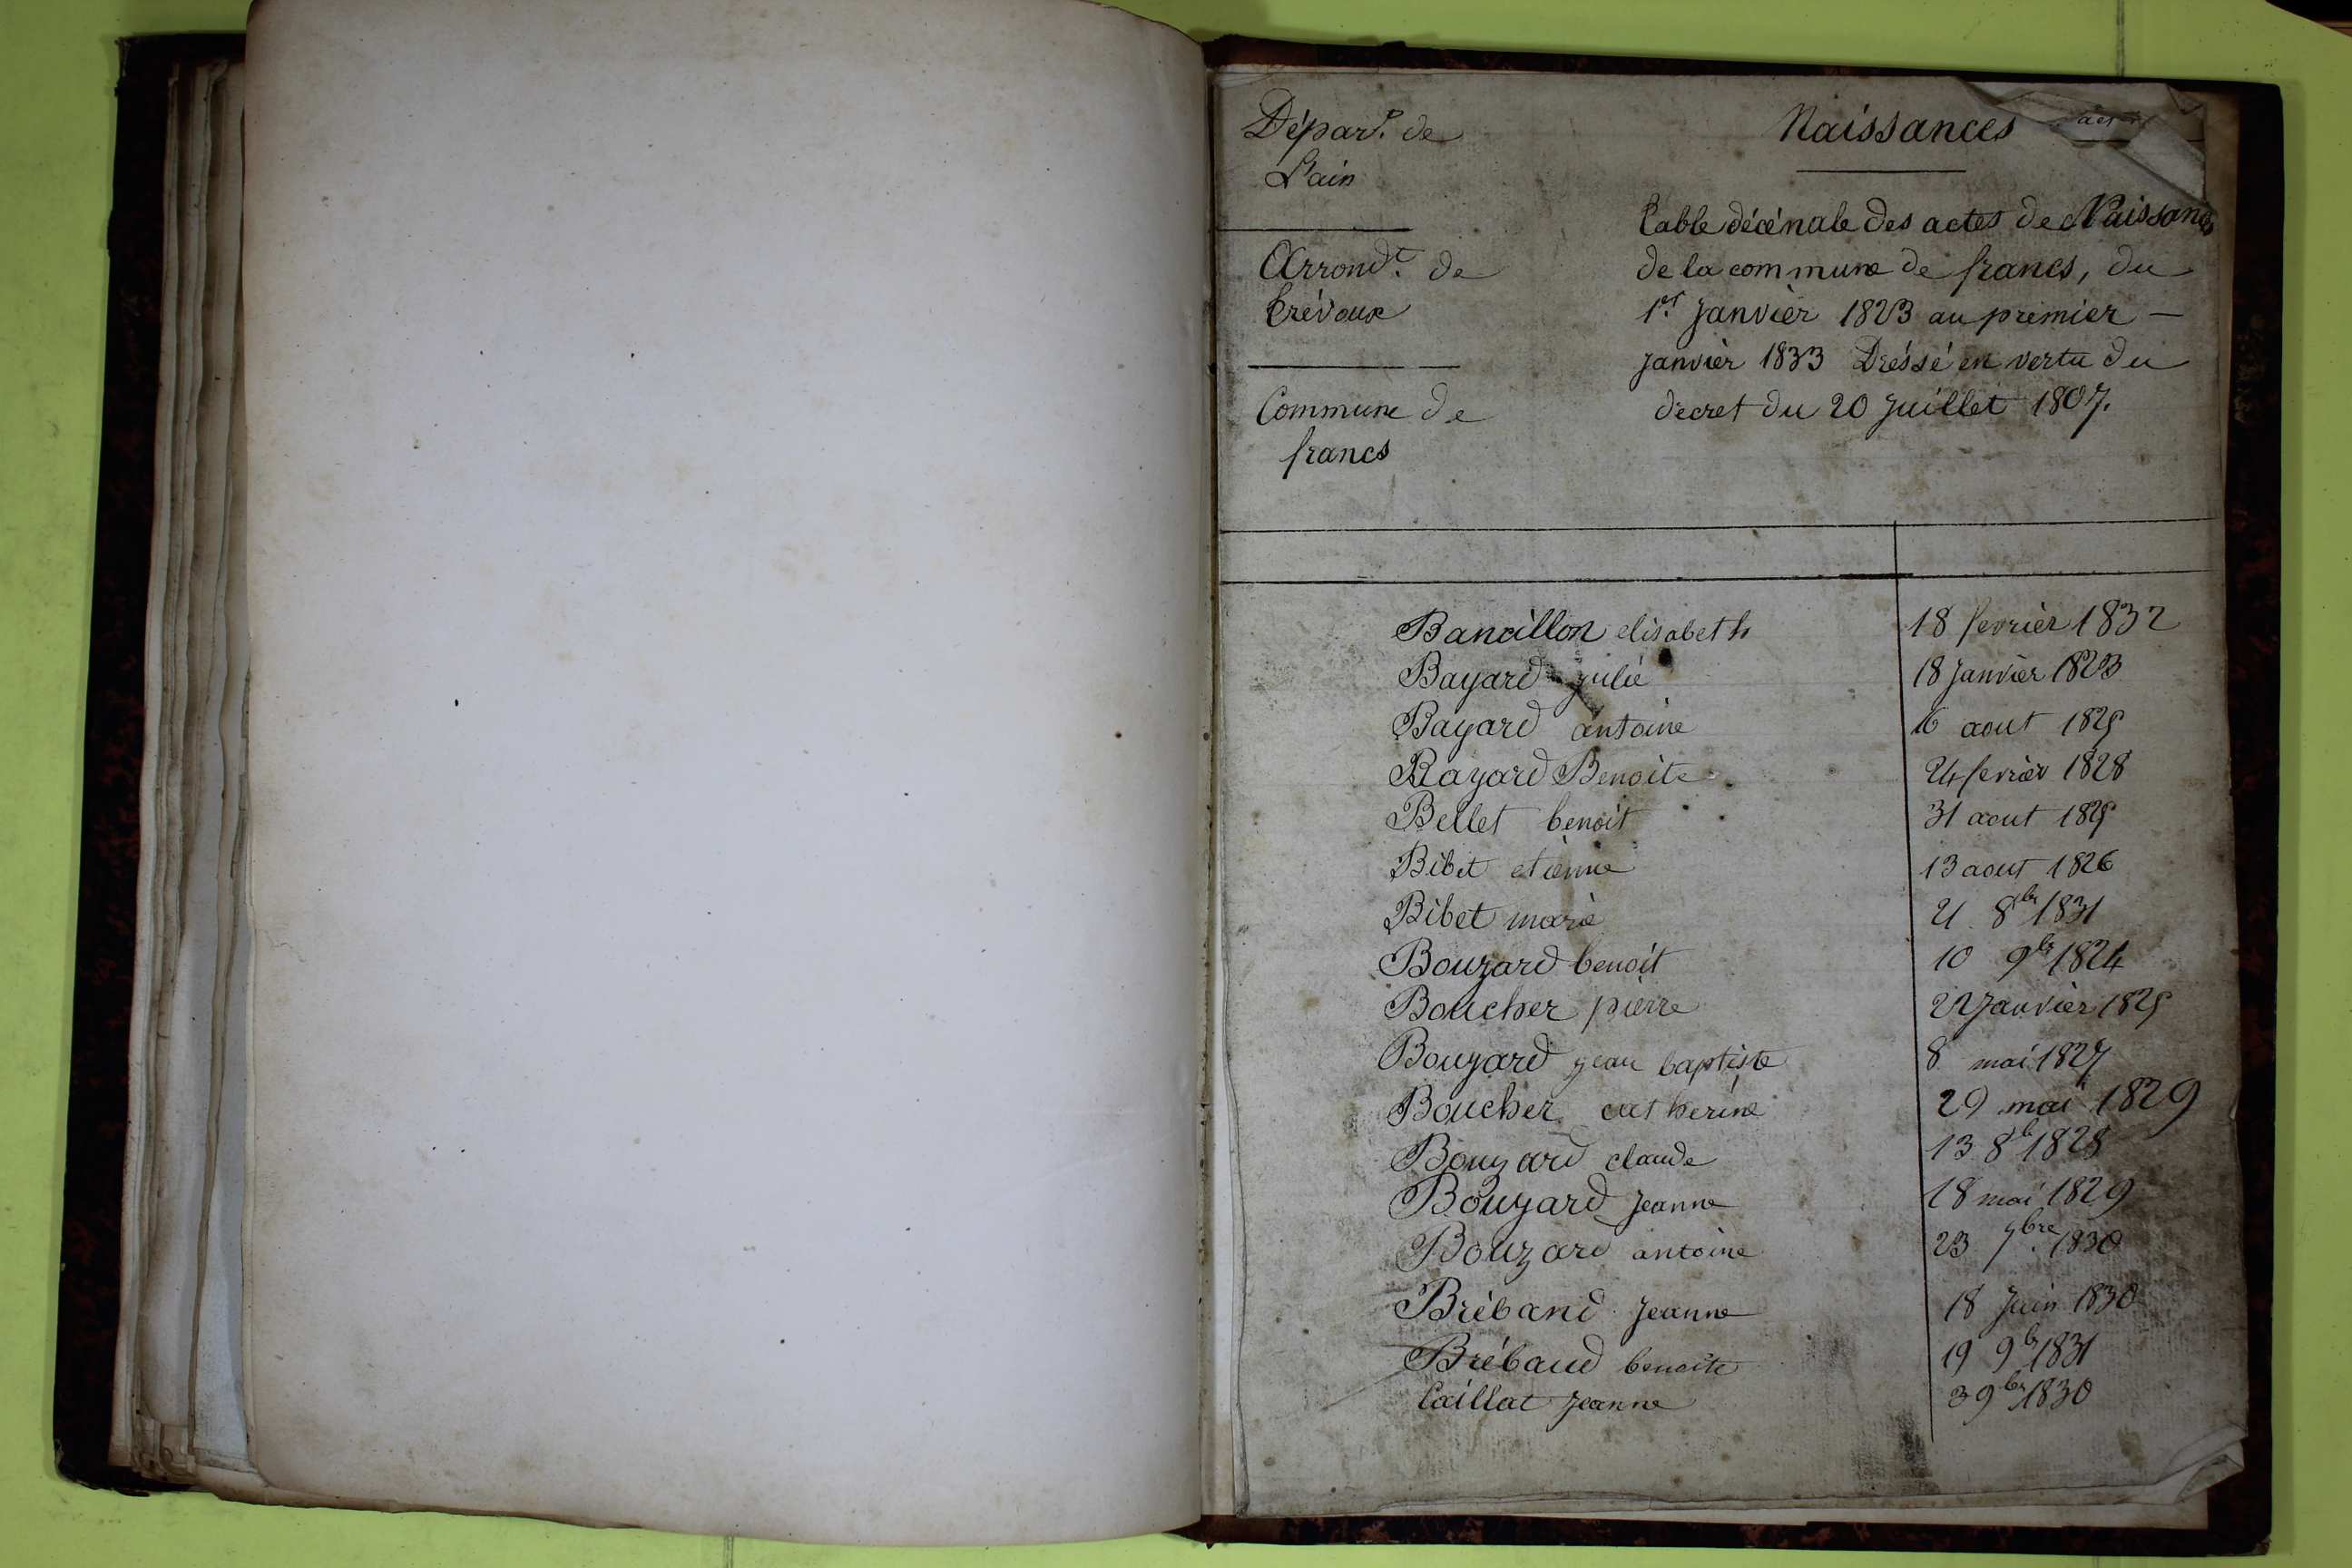 Départ. de
L'ain
Arrond.t de
trévoux
Commune de
francs
Naissances
table décénale des actes de Naissances
de la commune de francs, du
1er Janvièr 1823 au premier —
janvièr 1833 Dréssé en vertu du
decret du 20 Juillet 1807.
Bancillon elisabeth 18 fevrièr 1832
Bayard julie 18 Janvièr 1823
Bayard antoine 16 aout 1825
Bayard Benoite 24 fevrièr 1828
Bellet benoit 31 aout 1825
Bibet etienne 13 aout 1826
Bibet marie 21 8bre 1831
Bouzard benoit 10 9bre 1824
Boucher pierre 22 Janvièr 1825
Bouzard jean baptiste 8 mai 1827
Boucher catherine 29 mai 1829
Bouzard claude 13 8b 1828
Bouzard Jeanne 18 mai 1829
Bouzard antoine 23 7bre 1830
Bréband Jeanne 18 Juin 1830
Brébaud benoite 19 9b 1831
Caillat Jeanne 3 9br 1830